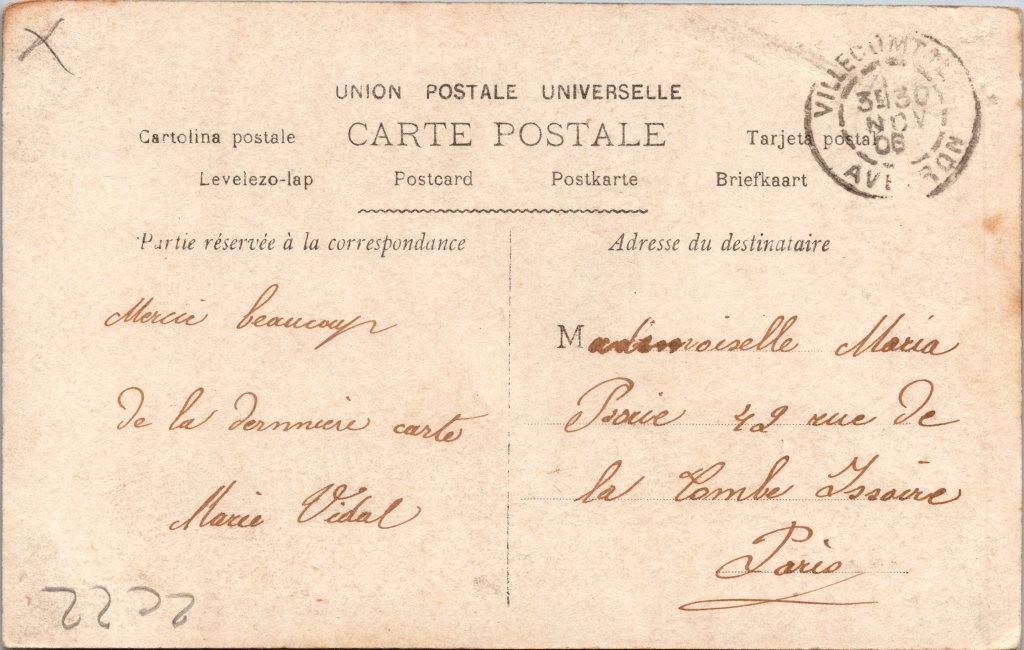 X
UNION POSTALE UNIVERSELLE
Cartolina postale CARTE POSTALE Tarjeta postal
Levelezo-lap Postcard Postkarte Briefkaart
Partie réservée à la correspondance
Adresse du destinataire
VILLECOMTAL
3E 30
NOV
06
AVEYRON
Mercie beaucoup
de la dernniere carte
Marie Vidal
Mademoiselle Maria
42 rue de
la Tombe Issoire
Paris